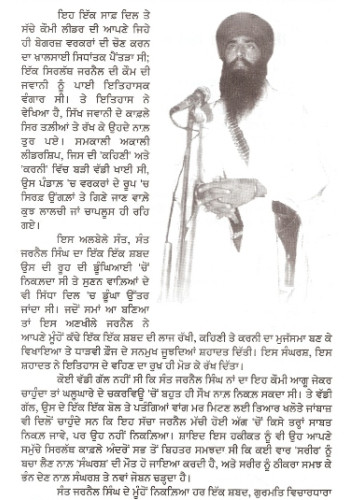 ਇਹ ਇੱਕ ਸਾਫ਼ ਦਿਲ ਤੇ
ਸੱਚੇ ਕੌਮੀ ਲੀਡਰ ਦੀ ਆਪਣੇ ਜਿਹੇ
ਹੀ ਬੇਗਰਜ਼ ਵਰਕਰਾਂ ਦੀ ਚੋਣ ਕਰਨ
ਦਾ ਖ਼ਾਲਸਾਈ ਸਿਧਾਂਤਕ ਪੈਂਤੜਾ ਸੀ;
ਇੱਕ ਸਿਰਲੱਥ ਜਰਨੈਲ ਦੀ ਕੌਮ ਦੀ
ਜਵਾਨੀ ਨੂੰ ਪਾਈ ਇਤਿਹਾਸਕ
ਵੰਗਾਰ ਸੀ। ਤੇ ਇਤਿਹਾਸ ਨੇ
ਵੇਖਿਆ ਹੈ, ਸਿੱਖ ਜਵਾਨੀ ਦੇ ਕਾਫ਼ਲੇ
ਸਿਰ ਤਲੀਆਂ ਤੇ ਰੱਖ ਕੇ ਉਹਦੇ ਨਾਲ਼
ਤੁਰ ਪਏ। ਸਮਕਾਲੀ ਅਕਾਲੀ
ਲੀਡਰਸ਼ਿਪ, ਜਿਸ ਦੀ 'ਕਹਿਣੀ' ਅਤੇ
'ਕਰਨੀ' ਵਿੱਚ ਬੜੀ ਵੱਡੀ ਖਾਈ ਸੀ,
ਉਸ ਪੰਡਾਲ 'ਚ ਵਰਕਰਾਂ ਦੇ ਰੂਪ 'ਚ
ਸਿਰਫ਼ ਉਂਗਲਾਂ ਤੇ ਗਿਣੇ ਜਾਣ ਵਾਲ਼ੇ
ਕੁਝ ਲਾਲਚੀ ਜਾਂ ਚਾਪਲੂਸ ਹੀ ਰਹਿ
ਗਏ।
ਇਸ ਅਲਬੇਲੇ ਸੰਤ, ਸੰਤ
ਜਰਨੈਲ ਸਿੰਘ ਦਾ ਇੱਕ ਇੱਕ ਸ਼ਬਦ
ਉਸ ਦੀ ਰੂਹ ਦੀ ਡੂੰਘਿਆਈ 'ਚੋਂ
ਨਿਕਲਦਾ ਸੀ ਤੇ ਸੁਣਨ ਵਾਲ਼ਿਆਂ ਦੇ
ਵੀ ਸਿੱਧਾ ਦਿਲ 'ਚ ਡੂੰਘਾ ਉੱਤਰ
ਜਾਂਦਾ ਸੀ। ਜਦੋਂ ਸਮਾਂ ਆ ਬਣਿਆ
ਤਾਂ ਇਸ ਅਣਖੀਲੇ ਜਰਨੈਲ ਨੇ
ਆਪਣੇ ਮੂੰਹੋਂ ਕੱਢੇ ਇੱਕ ਇੱਕ ਸ਼ਬਦ ਦੀ ਲਾਜ ਰੱਖੀ, ਕਹਿਣੀ ਤੇ ਕਰਨੀ ਦਾ ਮੁਜੱਸਮਾ ਬਣ ਕੇ
ਵਿਖਾਇਆ ਤੇ ਧਾੜਵੀ ਫ਼ੌਜ ਦੇ ਸਨਮੁਖ ਜੂਝਦਿਆਂ ਸ਼ਹਾਦਤ ਦਿੱਤੀ। ਇਸ ਸੰਘਰਸ਼, ਇਸ
ਸ਼ਹਾਦਤ ਨੇ ਇਤਿਹਾਸ ਦੇ ਵਹਿਣ ਦਾ ਰੁਖ਼ ਹੀ ਮੋੜ ਕੇ ਰੱਖ ਦਿੱਤਾ।
ਕੋਈ ਵੱਡੀ ਗੱਲ ਨਹੀਂ ਸੀ ਕਿ ਸੰਤ ਜਰਨੈਲ ਸਿੰਘ ਨਾਂ ਦਾ ਇਹ ਕੌਮੀ ਆਗੂ ਜੇਕਰ
ਚਾਹੁੰਦਾ ਤਾਂ ਘਲੂਘਾਰੇ ਦੇ ਚਕਰਵਿਊ 'ਚੋਂ ਬਹੁਤ ਹੀ ਸੌਖ ਨਾਲ਼ ਨਿਕਲ ਸਕਦਾ ਸੀ। ਤੇ ਵੱਡੀ
ਗੱਲ, ਉਸ ਦੇ ਇੱਕ ਇੱਕ ਬੋਲ ਤੇ ਪਤੰਗਿਆਂ ਵਾਂਗ ਮਰ ਮਿਟਣ ਲਈ ਤਿਆਰ ਖਲੋਤੇ ਜਾਂਬਾਜ਼
ਵੀ ਦਿਲੋਂ ਚਾਹੁੰਦੇ ਸਨ ਕਿ ਇਹ ਸੱਚਾ ਜਰਨੈਲ ਮੱਚੀ ਹੋਈ ਅੱਗ 'ਚੋਂ ਕਿਸੇ ਤਰ੍ਹਾਂ ਸਾਬਤ
ਨਿਕਲ ਜਾਵੇ, ਪਰ ਉਹ ਨਹੀਂ ਨਿਕਲਿਆ। ਸ਼ਾਇਦ ਇਸ ਹਕੀਕਤ ਨੂੰ ਵੀ ਉਹ ਆਪਣੇ
ਸਮੁੱਚੇ ਸਿਰਲੱਥ ਕਾਫ਼ਲੇ ਅੰਦਰੋਂ ਸਭ ਤੋਂ ਬਿਹਤਰ ਸਮਝਦਾ ਸੀ ਕਿ ਕਈ ਵਾਰ 'ਸਰੀਰ' ਨੂੰ
ਬਚਾ ਲੈਣ ਨਾਲ਼ 'ਸੰਘਰਸ਼' ਦੀ ਮੌਤ ਹੋ ਜਾਇਆ ਕਰਦੀ ਹੈ, ਅਤੇ ਸਰੀਰ ਨੂੰ ਠੀਕਰਾ ਸਮਝ ਕੇ
ਭੰਨ ਦੇਣ ਨਾਲ਼ ਸੰਘਰਸ਼ ਤੇ ਨਵਾਂ ਜੋਬਨ ਚੜ੍ਹਦਾ ਹੈ।
ਸੰਤ ਜਰਨੈਲ ਸਿੰਘ ਦੇ ਮੂੰਹੋਂ ਨਿਕਲਿਆ ਹਰ ਇੱਕ ਸ਼ਬਦ, ਗੁਰਮਤਿ ਵਿਚਾਰਧਾਰਾ